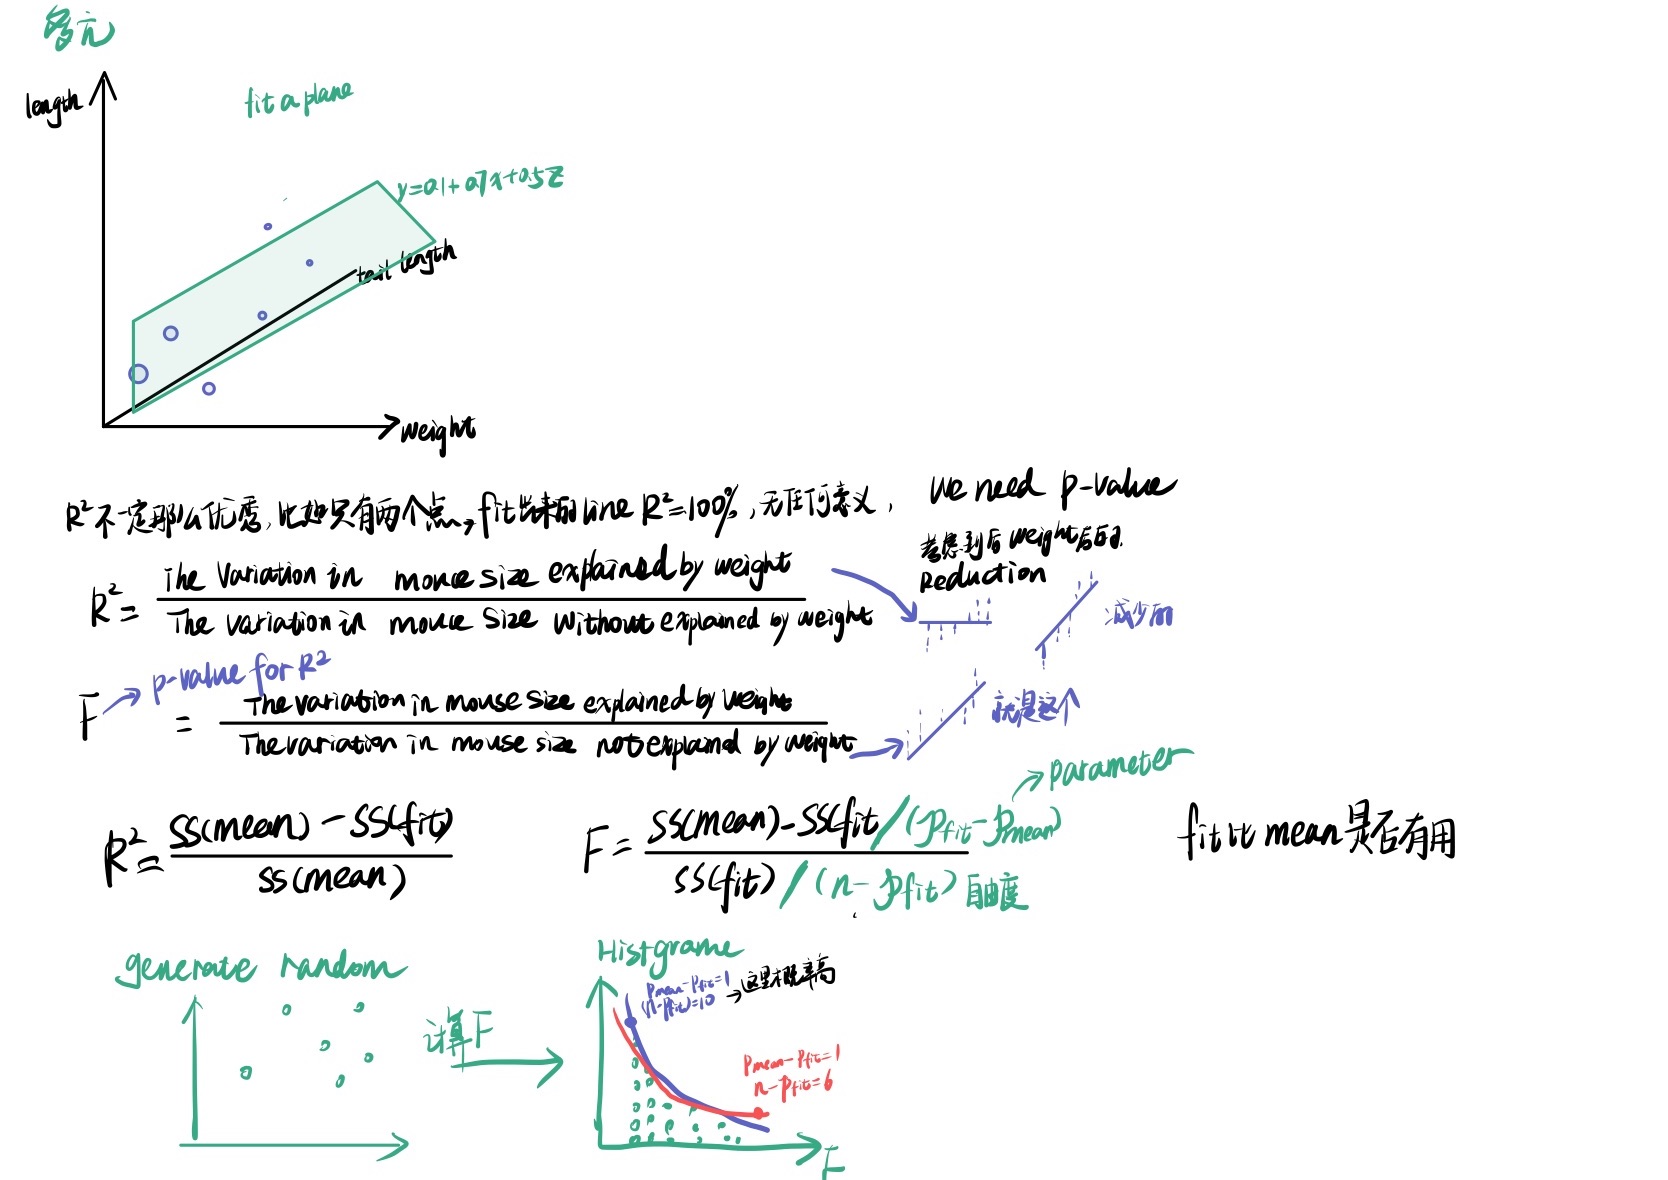 多元
length
fit a plane
y=0.1+0.7x+0.5z
tail length
weight
R²不一定那么优秀,比如只有两个点,fit出来的line R²=100%,无任何意义,
We need p-value
考虑到后weight后的
Reduction
R²= The Variation in mouse size explained by weight
The variation in mouse size without explained by weight
减少的
p-value for R²
F = The variation in mouse size explained by weight
The variation in mouse size not explained by weight
就是这个
parameter
R²= SS(mean)-SS(fit)
SS(mean)
F= SS(mean)-SS(fit)/(pfit-pmean)
SS(fit)/(n-pfit) 自由度
fit比mean是否有用
generate random
计算F
Histgrame
Pmean-Pfit=1
(n-Pfit)=10
这里概率高
Pmean-Pfit=1
n-Pfit=6
F